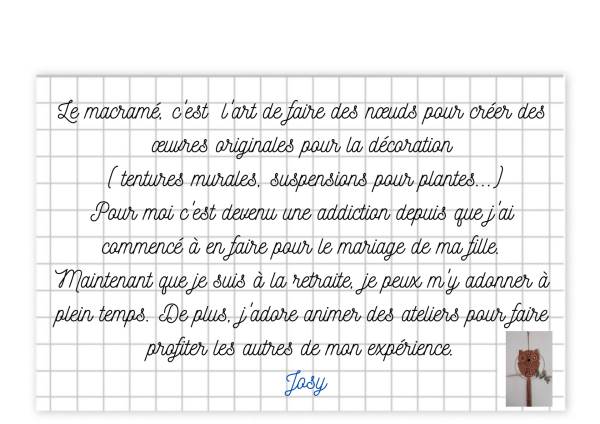 Le macramé, c'est l'art de faire des nœuds pour créer des
œuvres originales pour la décoration
( tentures murales, suspensions pour plantes...)
Pour moi c'est devenu une addiction depuis que j'ai
commencé à en faire pour le mariage de ma fille.
Maintenant que je suis à la retraite, je peux m'y adonner à
plein temps. De plus, j'adore animer des ateliers pour faire
profiter les autres de mon expérience.
Josy